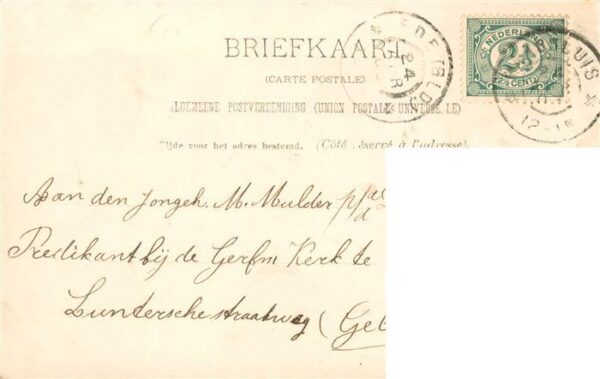 BRIEFKAART
(CARTE POSTALE)
ALGEMEENE POSTVEREENIGING (UNION POSTALE UNIVERSELLE)
Zijde voor het adres bestemd. (Côté réservé à l'adresse).
NEDERLAND
2½
(2½ CENT)
EDE (GLD
2-4
SLUIS
12-1N
Aan den Jongeh. M. Mulder p/a
Predikant bij de Gerfm Kerk te
Lunterschestraatweg (Gel